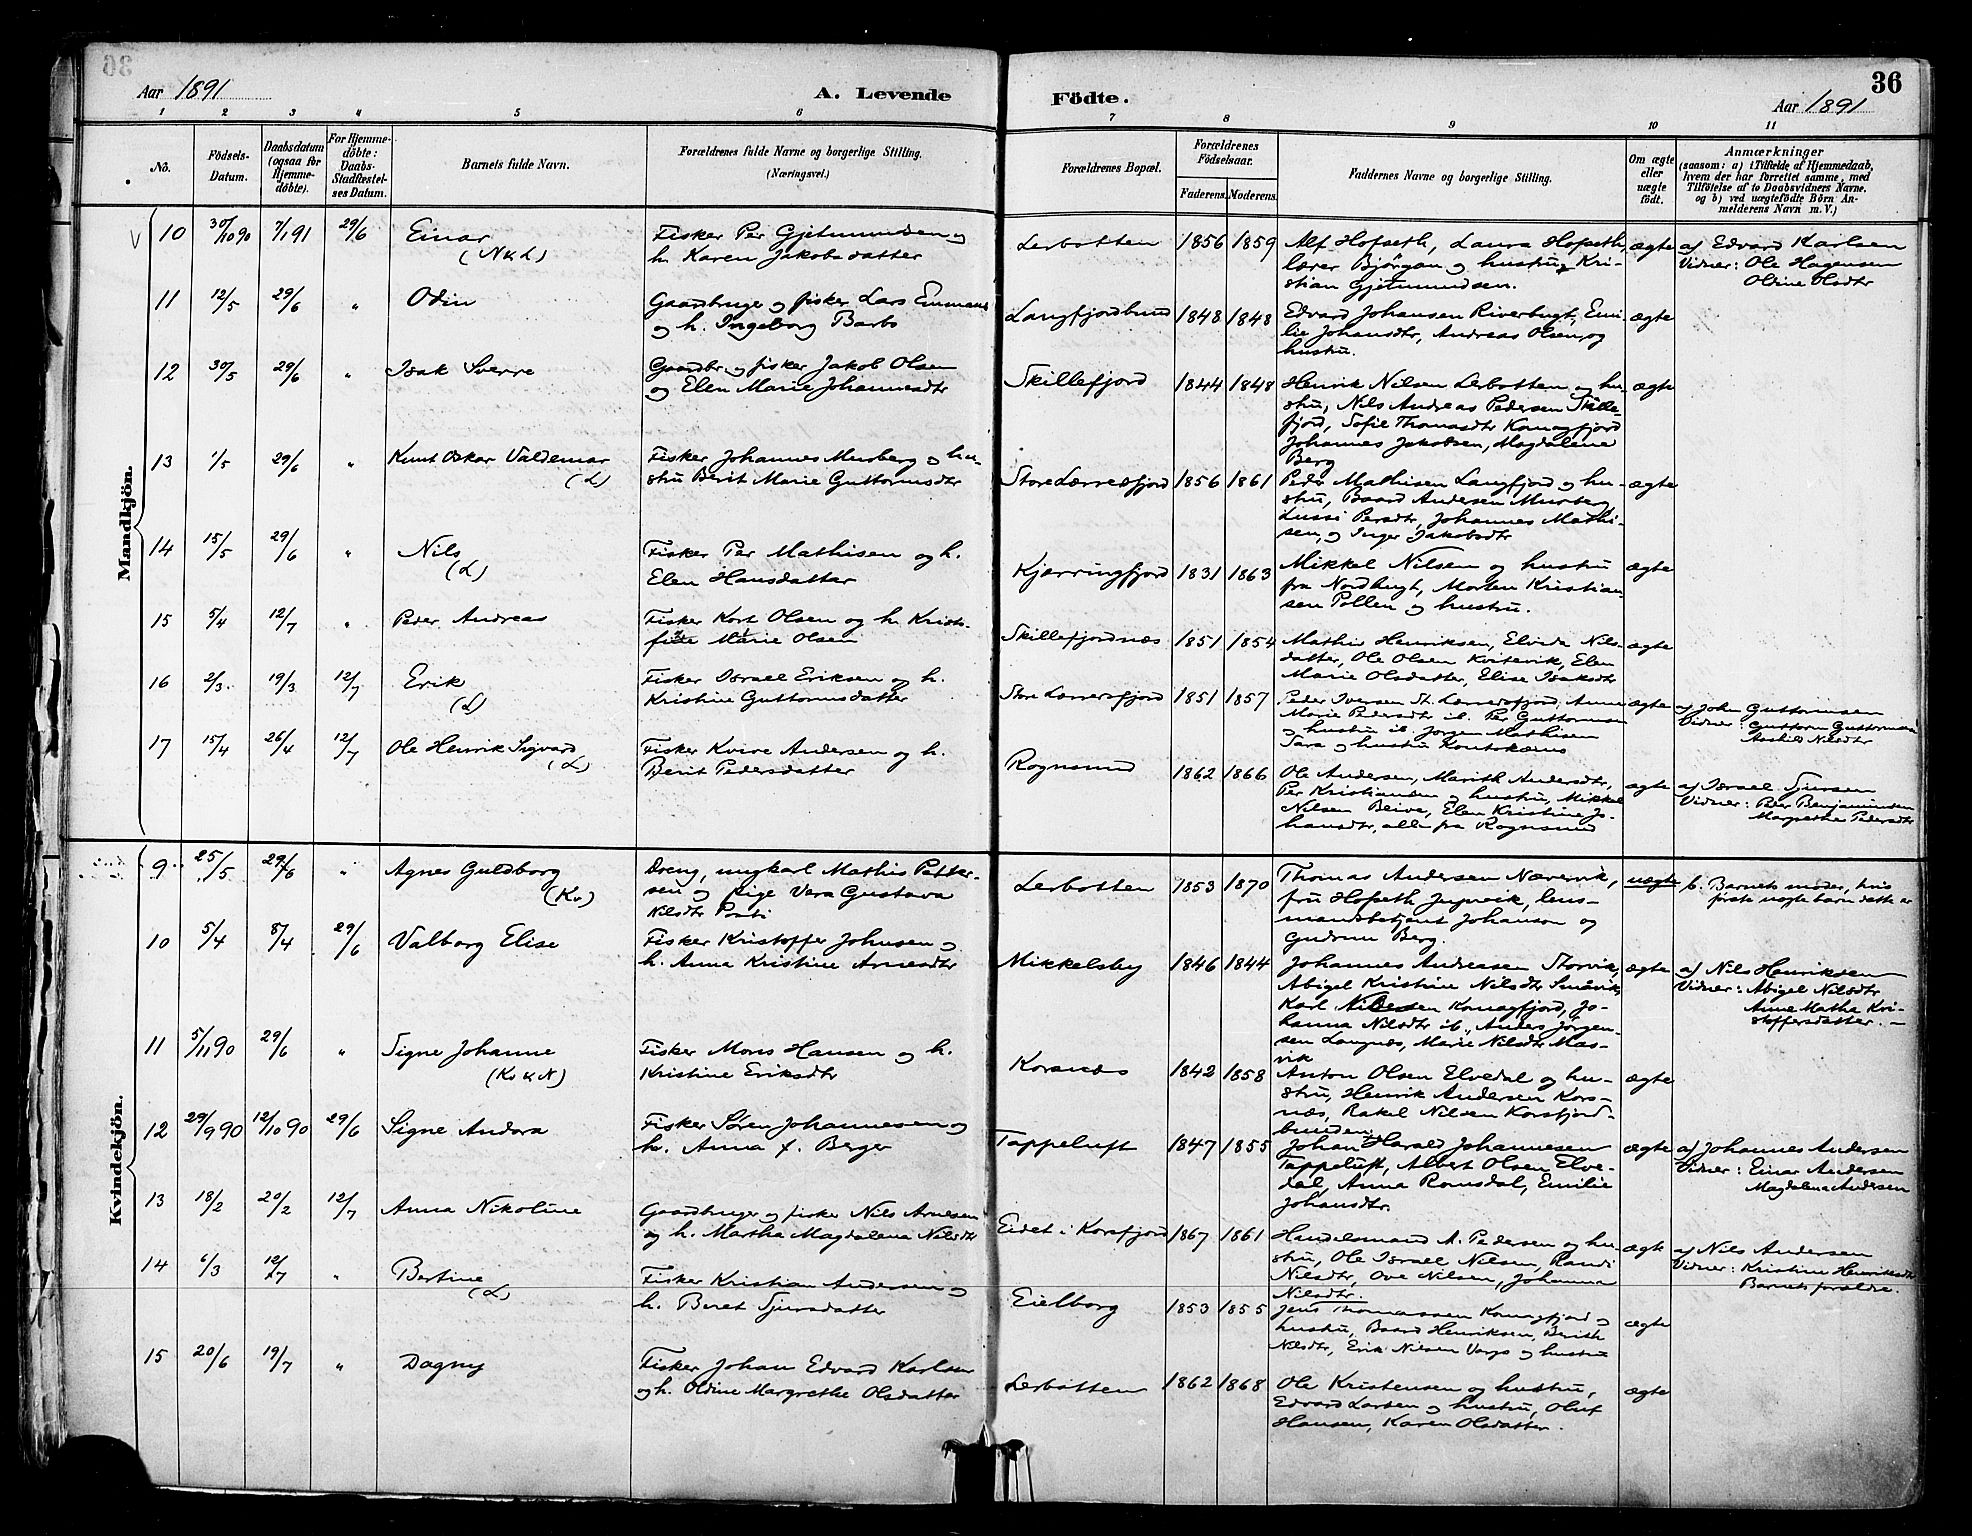 Aar 1891
A. Levende Födte.
36
Aar 1891
1 2 3 4 5 6 7 8 9 10 11
No.
Födsels-Datum.
Daabsdatum (ogsaa för Hjemme-döbte).
For Hjemme-döbte: Daabs-Stadfæstelses Datum.
Barnets fulde Navn.
Forældrenes fulde Navne og borgerlige Stilling. (Næringsvei.)
Forældrenes Bopæl.
Forældrenes Födselsaar.
Faderens. Moderens.
Faddernes Navne og borgerlige Stilling.
Om ægte eller uægte födt.
Anmærkninger (saasom: a) i Tilfælde af Hjemmedaab, hvem der har forrettet samme, med Tilföielse af to Daabsvidners Navne. og b) ved uægtefödte Börn Anmelderens Navn m. V.)
Mandkjön.
10 30/10 90 7/1 91 29/6 Einar (N & L) Fisker Per Gjetmundsen og h. Karen Jakobsdatter Lerbotten 1856 1859 Alf Hofseth, Laura Hofseth, lærer Bjørgan og hustru, Kristian Gjetmundsen. ægte af Edvard Karlsen Vidner: Ole Hagensen Oldine Olsdtr
11 12/5 29/6 " Odin Gaardbruger og fisker Lars og h. Ingeborg Barbo Langfjordbund 1848 1848 Edvard Johansen Riverbugt, Emilie Johansdtr, Andreas Olsen og hustru. ægte
12 30/5 29/6 " Isak Sverre Gaardbr. og fisker Jakob Olsen og Elen Marie Johannesdtr Skillefjord 1844 1848 Henrik Nilsen Lerbotten og hustru, Nils Andreas Pedersen Skillefjord, Sofie Thomasdtr Komagfjord Johannes Jakobsen, Magdalene Berg ægte
13 1/5 29/6 " Knut Oskar Valdemar (L) Fisker Johannes Murberg og hustru Berit Marie Guttormsdtr Store Lerresfjord 1856 1861 Peder Mathisen Langfjord og hustru, Baard Andersen Murberg, Lussi Persdtr, Johannes Mathisen, og Inger Jakobsdtr ægte
14 15/5 29/6 " Nils (L) Fisker Per Mathisen og h. Elen Hansdatter Kjærringfjord 1831 1863 Mikkel Nilsen og hustru fra Nordbugt, Morten Kristiansen Pollen og hustru. ægte
15 5/4 12/7 " Peder Andreas Fisker Kort Olsen og h. Marie Olsen Skillefjordnæs 1851 1854 Mathis Henriksen, Elvida Nilsdatter, Ole Olsen Kvitevik, Elen Marie Olsdatter, Elise Isaksdtr ægte
16 2/3 19/3 12/7 Erik (L) Fisker Israel Eriksen og h. Kristine Guttormsdatter Store Lerresfjord 1851 1857 Peder Iversen St. Lerresfjord, Anne Marie Pedersdtr ib. Per Guttormsen og hustru ib. Jørgen Mathisen Sara og hustru Koutokæino ægte af John Guttormsen Vidner: Guttorm Guttormsen Nilsdtr
17 15/4 26/4 12/7 Ole Henrik Sigvard (L) Fisker Kvive Andersen og h. Berit Pedersdatter Rognsund 1862 1866 Ole Andersen, Marith Andersdtr, Per Kristiansen og hustru, Mikkel Nilsen Beive, Elen Kristine Johansdtr, alle fra Rognsund ægte af Israel Sjursen Vidner: Peer Benjaminsen Margrethe Pedersdtr
Kvindekjön.
9 25/5 29/6 " Agnes Guldborg (Kv) Dreng, ungkarl Mathis Pettersen og pige Vera Gustava Nilsdtr Lerbotten 1853 1870 Thomas Andersen Nærevik, fru Hofseth, lensmandsbetjent Johanson og Gudrun Berg. uægte b. Barnets moder, hvis første uægte barn dette er
10 5/4 8/4 29/6 Valborg Elise Fisker Kristoffer Johnsen og h. Anna Kristine Arnesdtr Mikkelsby 1846 1844 Johannes Andreasen Storvik, Abigel Kristine Nilsdtr Smaavik, Karl Nilsen Komagfjord, Johanna Nilsdtr ib., Anders Jørgensen Langnæs, Marie Nilsdtr Masvik ægte af Nils Henriksen Vidner: Abigel Nilsdtr Anne Matha Kristoffersdatter.
11 5/11 90 29/6 " Signe Johanne (Kv & N) Fisker Mons Hansen og h. Kristine Eriksdtr Korsnæs 1842 1858 Anton Olsen Elvedal og hustru, Henrik Andersen Korsnæs, Rakel Nilsen Korsfjordbunden ægte
12 29/9 90 12/10 90 29/6 Signe Andora Fisker Søren Johannesen og h. Anna f. Berger Tappeluft 1847 1855 Johan Harald Johannesen Tappeluft, Albert Olsen Elvedal, Anna Romsdal, Emilie Johansdtr. ægte af Johannes Andersen Vidner: Einar Andersen Magdalena Andersen
13 18/2 20/2 12/7 Anna Nikoline Gaardbruger og fisker Nils Arnesen og h. Martha Magdalena Nilsdtr Eidet i Korsfjord 1867 1861 Handelsmand A. Pedersen og hustru, Ole Israel Nilsen, Randi Nilsdtr, Ove Nilsen, Johanna Nilsdtr. ægte af Nils Andersen Vidner: Kristine Henriksdtr Barnets forældre.
14 6/3 12/7 " Bertine (L) Fisker Kristian Andersen og h. Beret Sjursdatter Eielborg 1853 1855 Jens Thomassen Komagfjord og hustru, Baard Henriksen, Berith Nilsdtr, Erik Nilsen Vargo og hustru ægte
15 20/6 19/7 " Dagny Fisker Johan Edvard Karlsen og h. Oldine Margrethe Olsdatter Lerbotten 1862 1868 Ole Kristensen og hustru, Edvard Larsen og hustru, Oluf Hansen, Karen Olsdatter. ægte